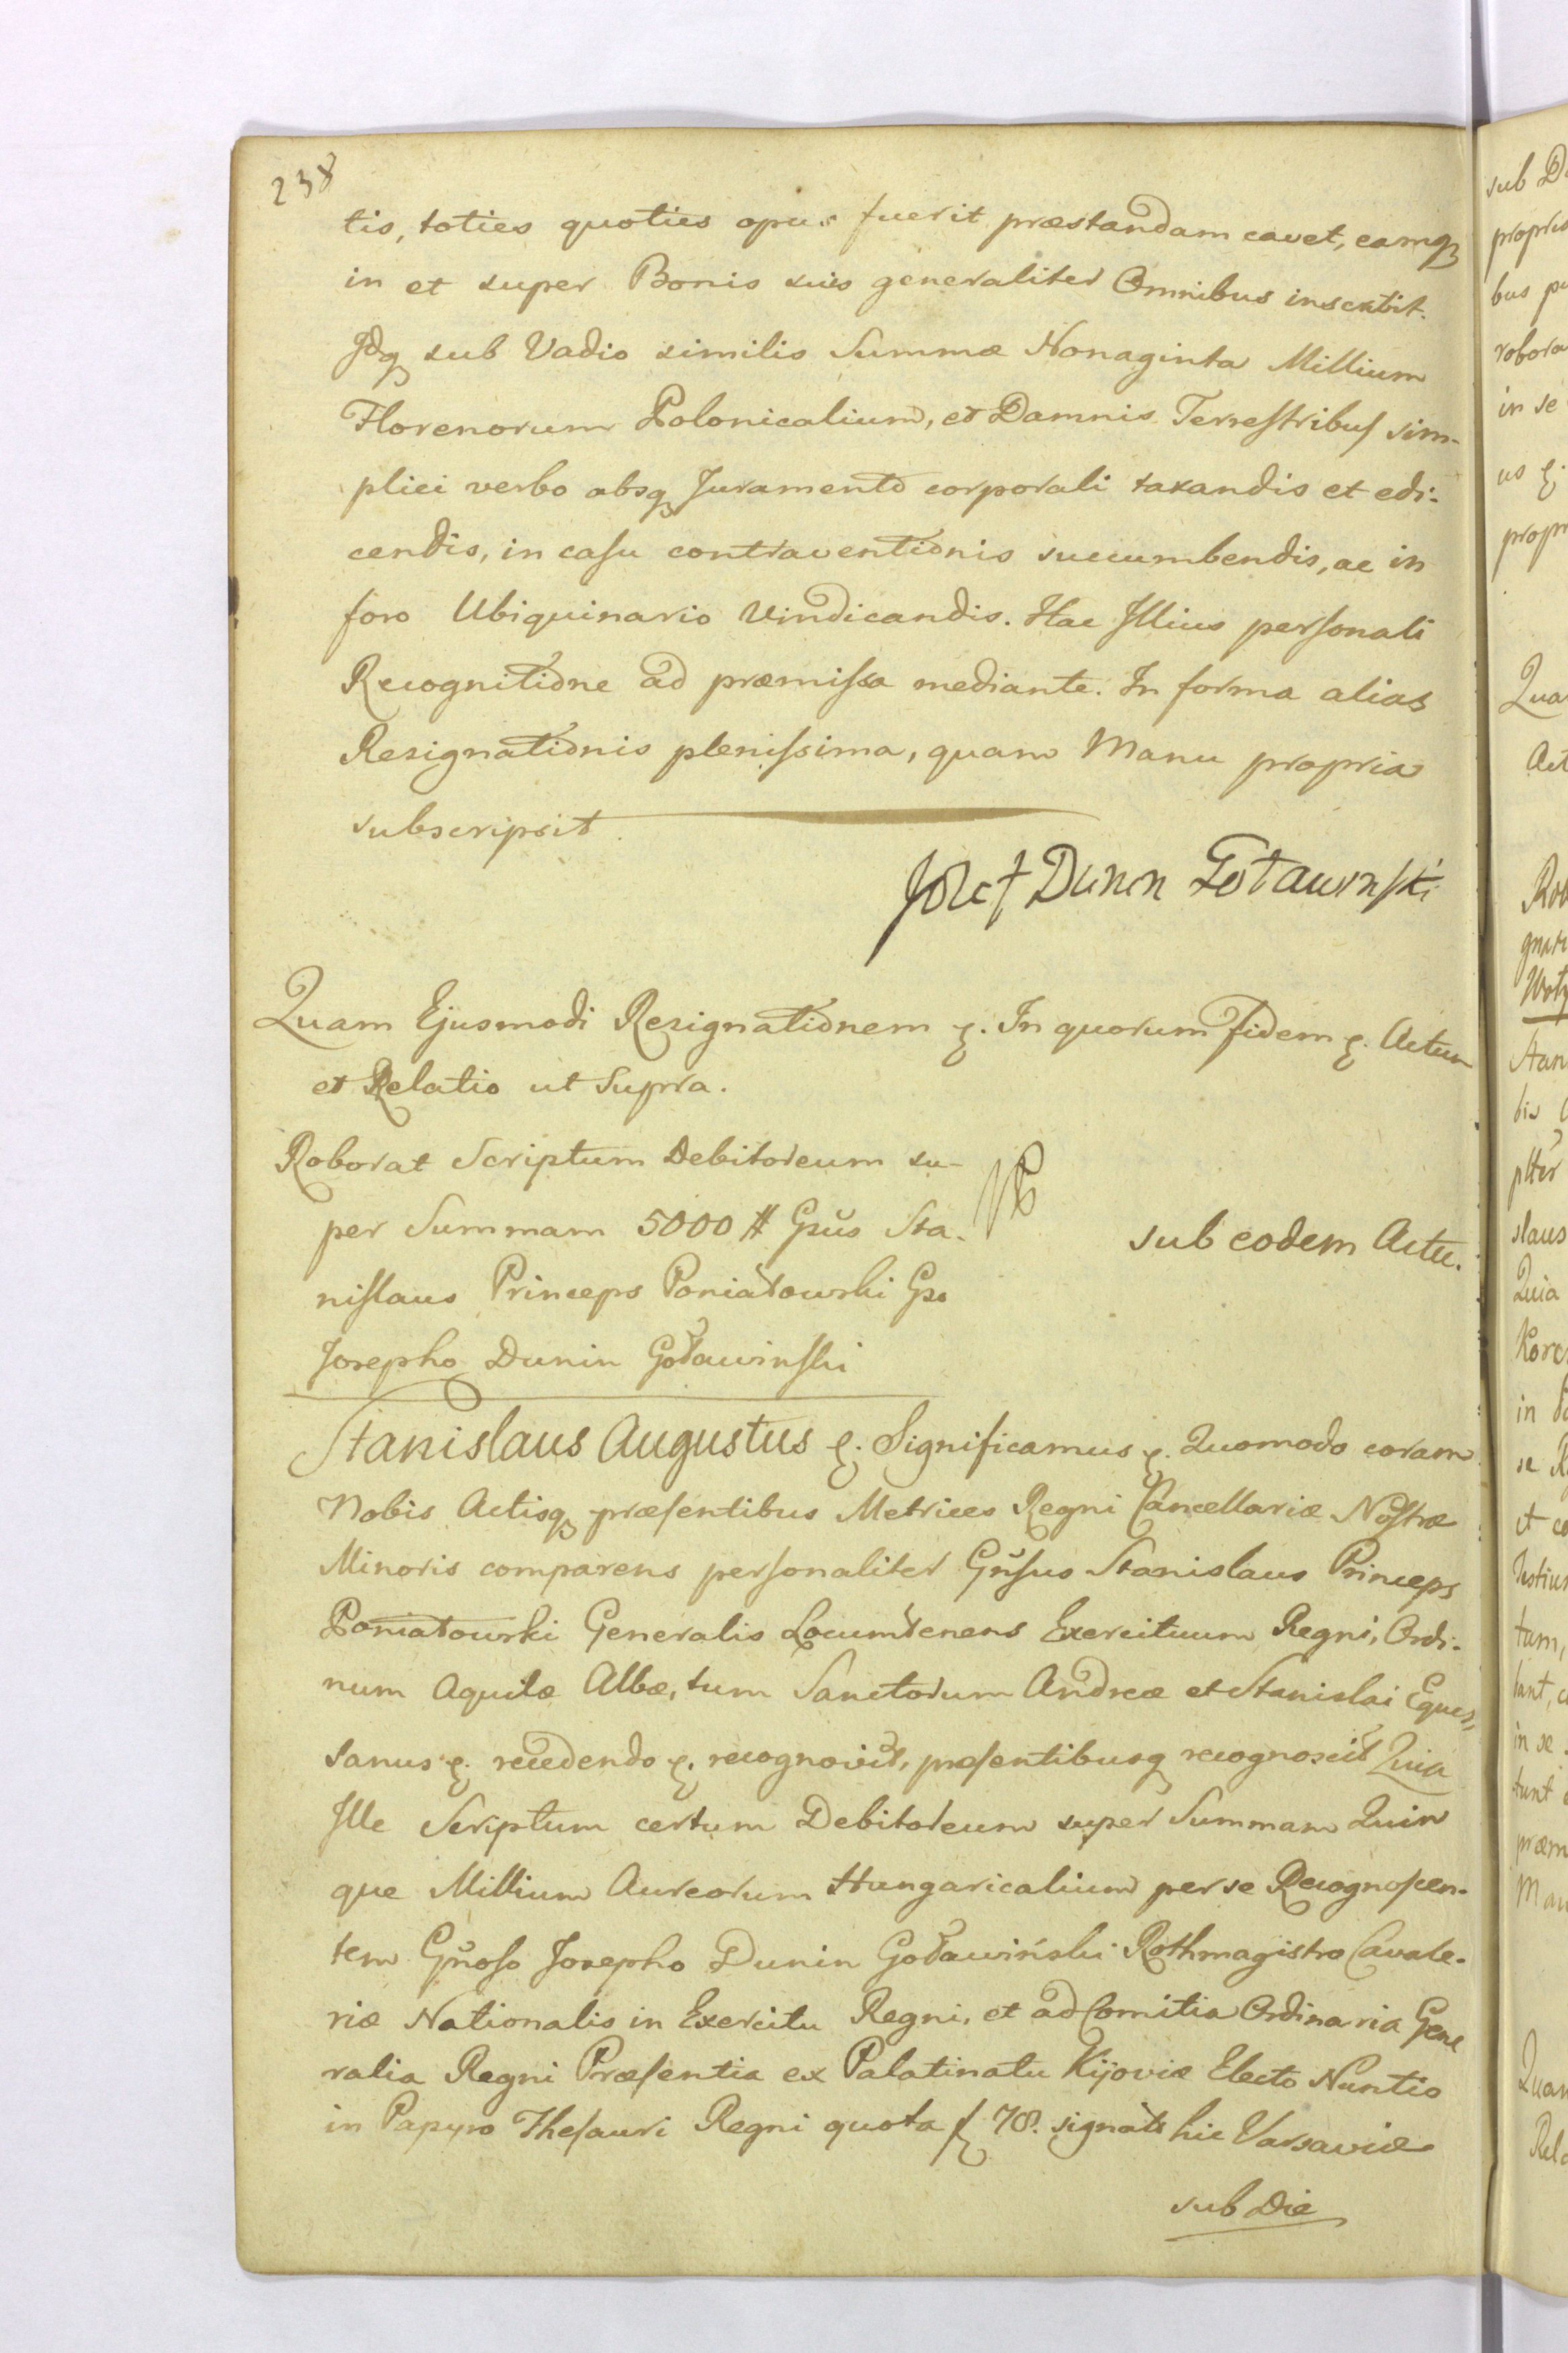 238
tis, toties quoties opus fuerit præstandam cavet, eamq̃
in et super Bonis suis generaliter Omnibus inscribit.
Idq̃ sub Vadio similis Summæ Nonaginta Millium
Florenorum Polonicalium, et Damnis Terrestribus sim-
plici verbo absq̃ Juramento corporali taxandis et edi-
cendis, in casu contraventionis succumbendis, ac in
foro Ubiquinario Vindicandis. Hac Illius personali
Recognitione ad præmissa mediante. In forma alias
Resignationis plenissima, quam Manu propria
subscripsit.
Józef Dunin Goławinski
Quam Ejusmodi Resignationem &. In quorum Fidem &. Actum
et Relatio ut Supra.
Roborat Scriptum Debitoreum su-
per Summam 5000 # Gsus Sta-
nislaus Princeps Poniatowski Gso
Josepho Dunin Goławinski
sub eodem Actu.
Stanislaus Augustus &. Significamus &. Quomodo coram
Nobis Actisq̃ præsentibus Metrices Regni Cancellariæ Nostræ
Minoris comparens personaliter Gnsus Stanislaus Princeps
Poniatowski Generalis Locumtenens Exercituum Regni, Ordi-
num Aquilæ Albæ, tum Sanctorum Andreæ et Stanislai Eques,
sanus &. recedendo &. recognovit, præsentibusq̃ recognoscit Quia
Ille Scriptum certum Debitoreum super Summam Quin
que Millium Aureorum Hungaricalium per se Recognoscen-
tem Gnoso Josepho Dunin Goławiński Rothmagistro Cavale-
riæ Nationalis in Exercitu Regni, et ad Comitia Ordinaria Gene
ralia Regni Præsentia ex Palatinatu Kijoviæ Electo Nuntio
in Papyro Thesauri Regni quota f 78. signato hic Varsaviæ
sub Die